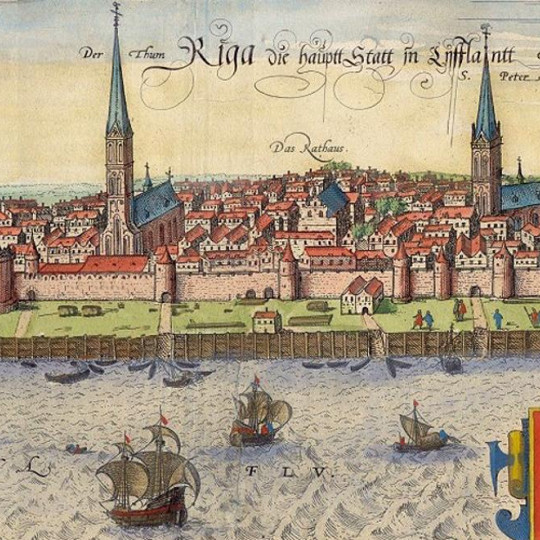 Der Thum
Riga die hauptt Statt in Lyfflantt
S. Peter
Das Rathaus.
L FLV.